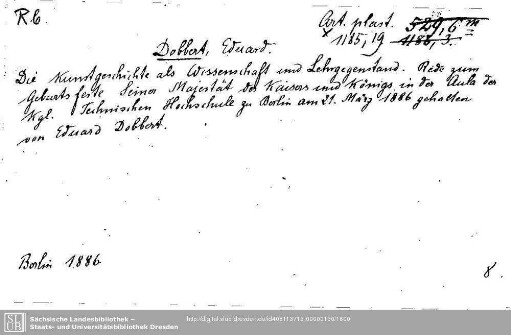 R.6.
Art. plast. 529,6 m
x 1185,19 1186,3.
Dobbert, Eduard.
Die Kunstgeschichte als Wissenschaft und Lehrgegenstand. Rede zum
Geburtsfeste Seiner Majestät des Kaisers und Königs in der Aula der
Kgl. Technischen Hochschule zu Berlin am 21. März 1886 gehalten
von Eduard Dobbert.
Berlin 1886
8.
SLUB
Sächsische Landesbibliothek –
Staats- und Universitätsbibliothek Dresden